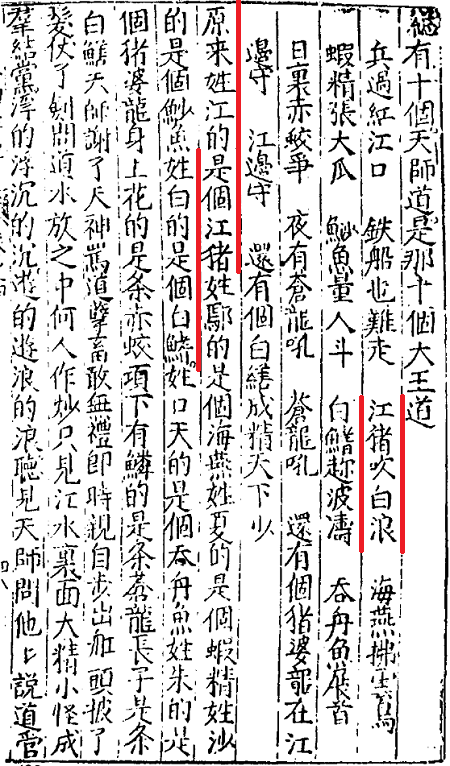 總有十個天師道是那十個大王道
兵過紅江口 鉄船也難走 江猪吹白浪 海燕拂雲鳥
蝦精張大瓜 鯋魚量人斗 白鱔趂波濤 吞舟魚展首
日裏赤蛟爭 夜有蒼龍吼 蒼龍吼 還有個猪婆龍在江
邊守 江邊守 還有個白鱔成精天下少
原来姓江的是個江猪姓鄢的是個海燕姓夏的是個蝦精姓沙
的是個鯋魚姓白的是個白鱔姓口天的是個吞舟魚姓朱的是
個猪婆龍身上花的是条赤蛟項下有鱗的是条蒼龍長子是条
白鱔天師謝了天神罵道孽畜敢無禮即時親自步出舡頭披了
髮仗了劍問道水放之中何人作妙只見江水裏面大精小怪成
羣結黨浮的浮沉的沉遊的遊浪的浪聽見天師問他〻說道管